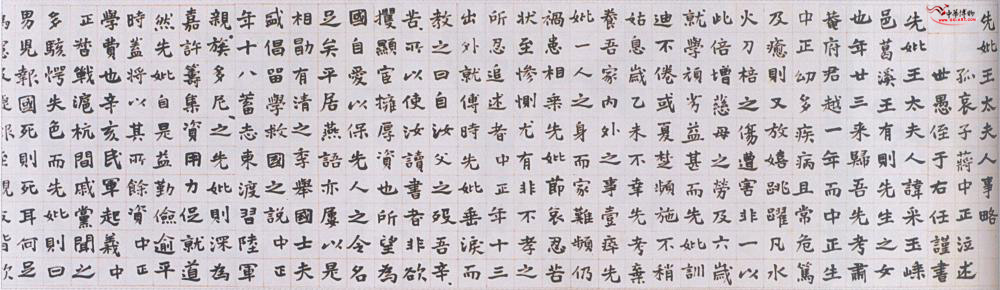 先妣王太夫人事略
孤哀子蔣中正泣述
世愚侄于右任謹書
先妣王太夫人諱采玉嵊
邑葛溪王有則先生之女
也年廿三來歸吾先考肅
菴府君越一年而中正生
中正幼又多疾病且常危篤
及癒則又放嬉跳躍凡水
火刀棓之傷遭害非一以
此倍增慈母之勞及六歲
就學頑劣益甚而先妣訓
迪不倦或夏楚頻施不稍
姑息歲乙未夏不幸先考棄
養吾家內外之事壹瘁先
妣一人之身而家難頻仍
禍患相乘先妣節哀忍苦
狀至慘惻尤有非不孝之
所忍追述者中正年十三
出外就傅時先妣垂淚而
教之曰自汝父之歿吾辛
苦所以使汝讀書者非欲
攫顯宦擁厚資也所望為
國自愛以保先人之令名
足矣平居燕語亦屢以是
相勖有清之季舉國士夫
咸倡留學救國之說中正
年十八蓄志東渡習陸軍
親族多尼之先妣則深為
嘉許籌集資用力促就道
然先妣自是益勤儉逾平
時蓋將以其所餘資中正
學費也辛亥民軍起義中
正督戰滬杭間戚黨聞之
多駭愕失色而先妣則曰
男兒報國死則死耳何足